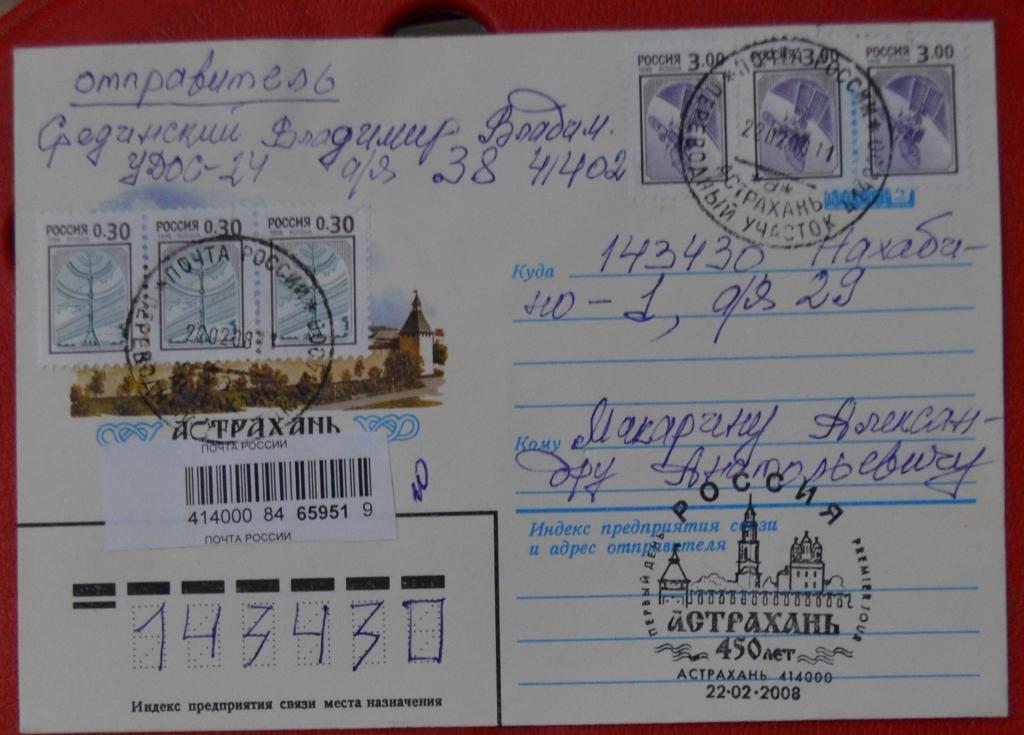 отправитель
Срединский Владимир Владим.
УДОС-24 а/я 38 41402
РОССИЯ 3.00
РОССИЯ 3.00
РОССИЯ 3.00
ПОЧТА РОССИИ
ПЕРЕВОДНЫЙ УЧАСТОК
22.02.08 11
АСТРАХАНЬ
РОССИЯ 0.30
РОССИЯ 0.30
РОССИЯ 0.30
ПОЧТА РОССИИ
АСТРАХАНЬ
ПОЧТА РОССИИ
414000 84 65951 9
ПОЧТА РОССИИ
Куда 143430 Нахаби-
но-1, а/я 29
Кому Макарчину Алексан-
дру Анатольевичу
Индекс предприятия связи
и адрес отправителя
РОССИЯ
ПЕРВЫЙ ДЕНЬ
PREMIER JOUR
АСТРАХАНЬ
450 ЛЕТ
АСТРАХАНЬ 414000
22·02·2008
143430
Индекс предприятия связи места назначения